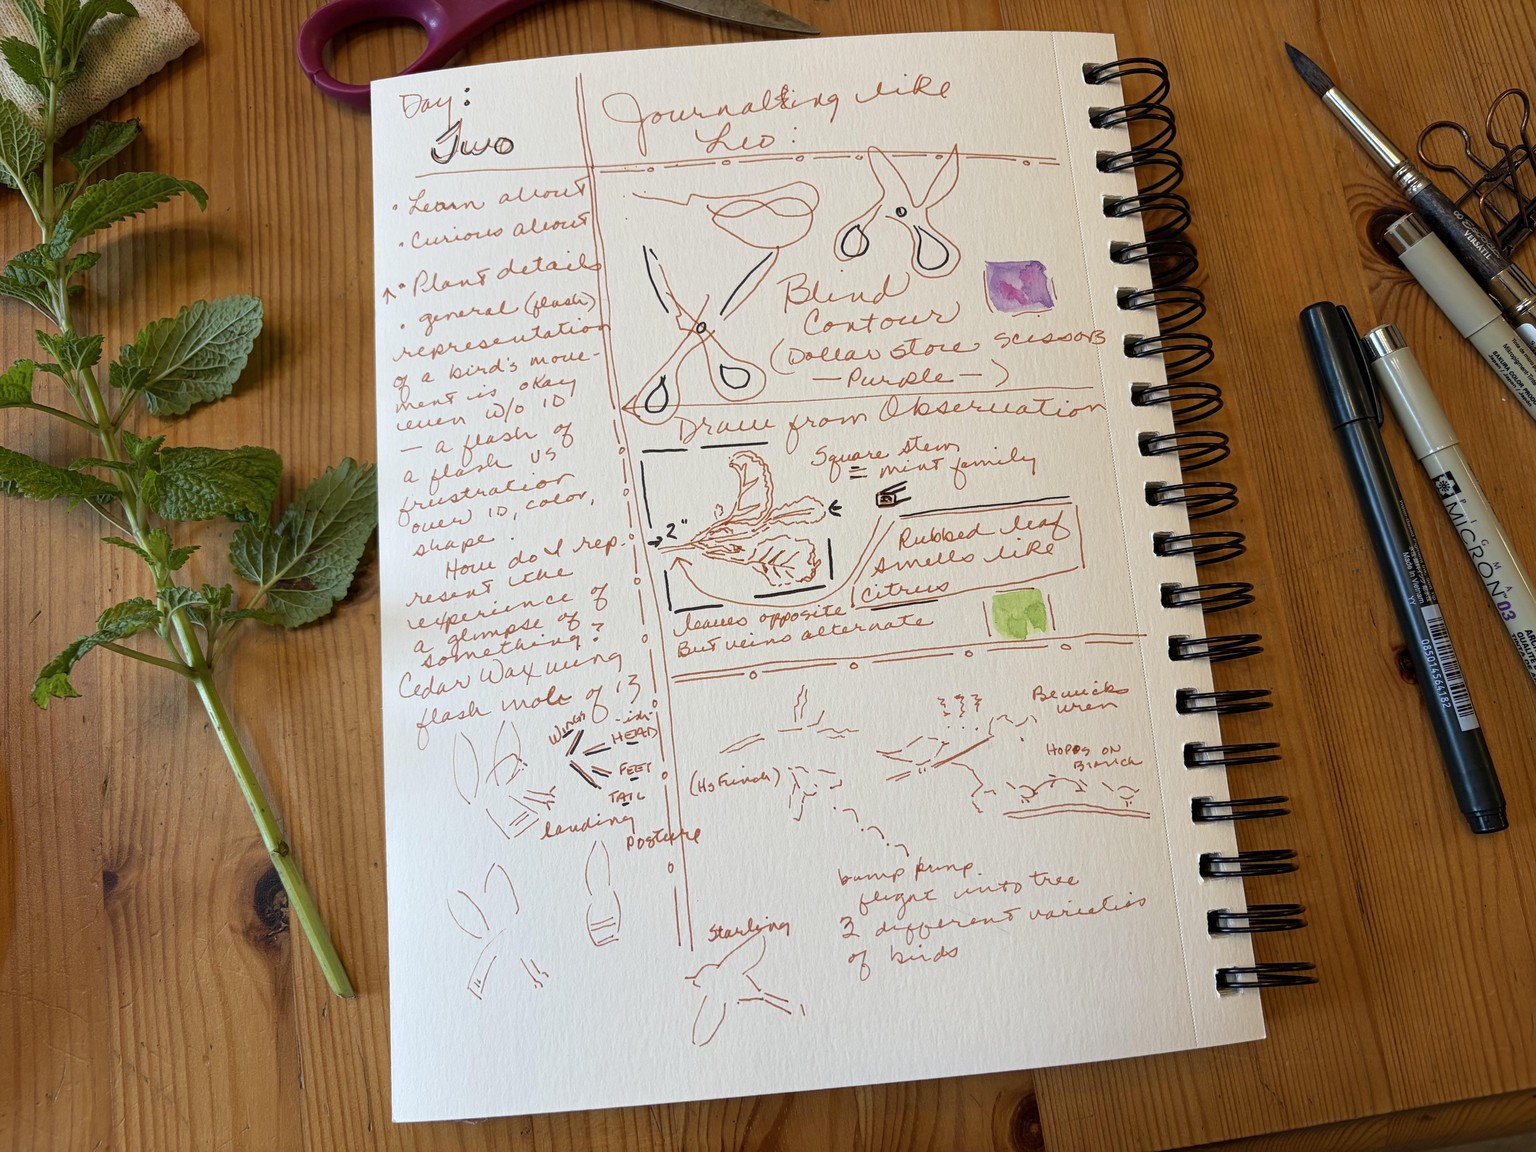 Day:
Two
Journalling like
Leo:
• Learn about
• Curious about
• Plant details
• general (flash)
representation
of a bird's move-
ment is okay
even w/o ID
— a flash of
a flash vs
frustration
over ID, color,
shape.
How do I rep-
resent the
experience of
a glimpse of
something?
Cedar Wax wing
flash mob of 13
-ish-
Wings
HEAD
FEET
TAIL
landing
Posture
Blind
Contour
(Dollar store scissors
— Purple —)
Draw from Observation
Square stem
= mint family
2"
Rubbed leaf
smells like
citrus
leaves opposite
But veins alternate
Bewicks
wren
Hops on
Branch
(Hs Finch)
bump bump
flight into tree
2 different varieties
of birds
Starling
VERSATIL
SAKURA COLOR PRODUCTS
MICRON
03
Made in Vietnam